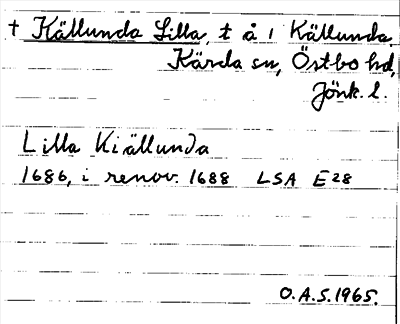 † Källunda Lilla, t å 1 Källunda,
Kärda sn, Östbo hd,
Jönk. l.
Lilla Kiällunda
1686, i renov. 1688 LSA E28
O.A.S. 1965.